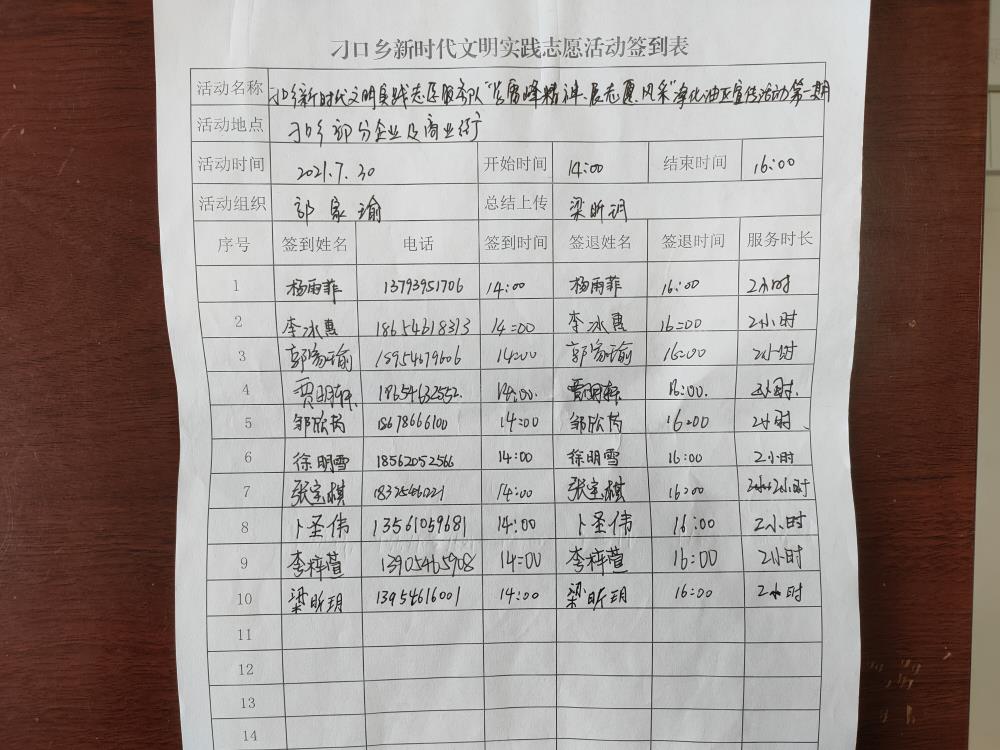 刁口乡新时代文明实践志愿活动签到表
活动名称 刁口乡新时代文明实践志愿服务队"学雷锋精神、展志愿风采"净化油区宣传活动第一期
活动地点 刁口乡部分企业及商业街
活动时间 2021.7.30 开始时间 14:00 结束时间 16:00
活动组织 郭家瑜 总结上传 梁昕玥
序号 签到姓名 电话 签到时间 签退姓名 签退时间 服务时长
1 杨雨菲 13793951706 14:00 杨雨菲 16:00 2小时
2 李冰惠 18654618313 14:00 李冰惠 16:00 2小时
3 郭家瑜 15954679606 14:00 郭家瑜 16:00 2小时
4 贾明轩 18654632552. 14:00. 贾明轩 16:00. 2小时.
5 邹欣芮 15678666100 14:00 邹欣芮 16:00 2小时、
6 徐明雪 18562052566 14:00 徐明雪 16:00 2小时
7 张宝棋 14:00 张宝棋 16:00 2小时
8 卜圣伟 13561059681 14:00 卜圣伟 16:00 2小时
9 李梓萱 13905465908 14:00 李梓萱 16:00 2小时
10 梁昕玥 13954616001 14:00 梁昕玥 16:00 2小时
11
12
13
14